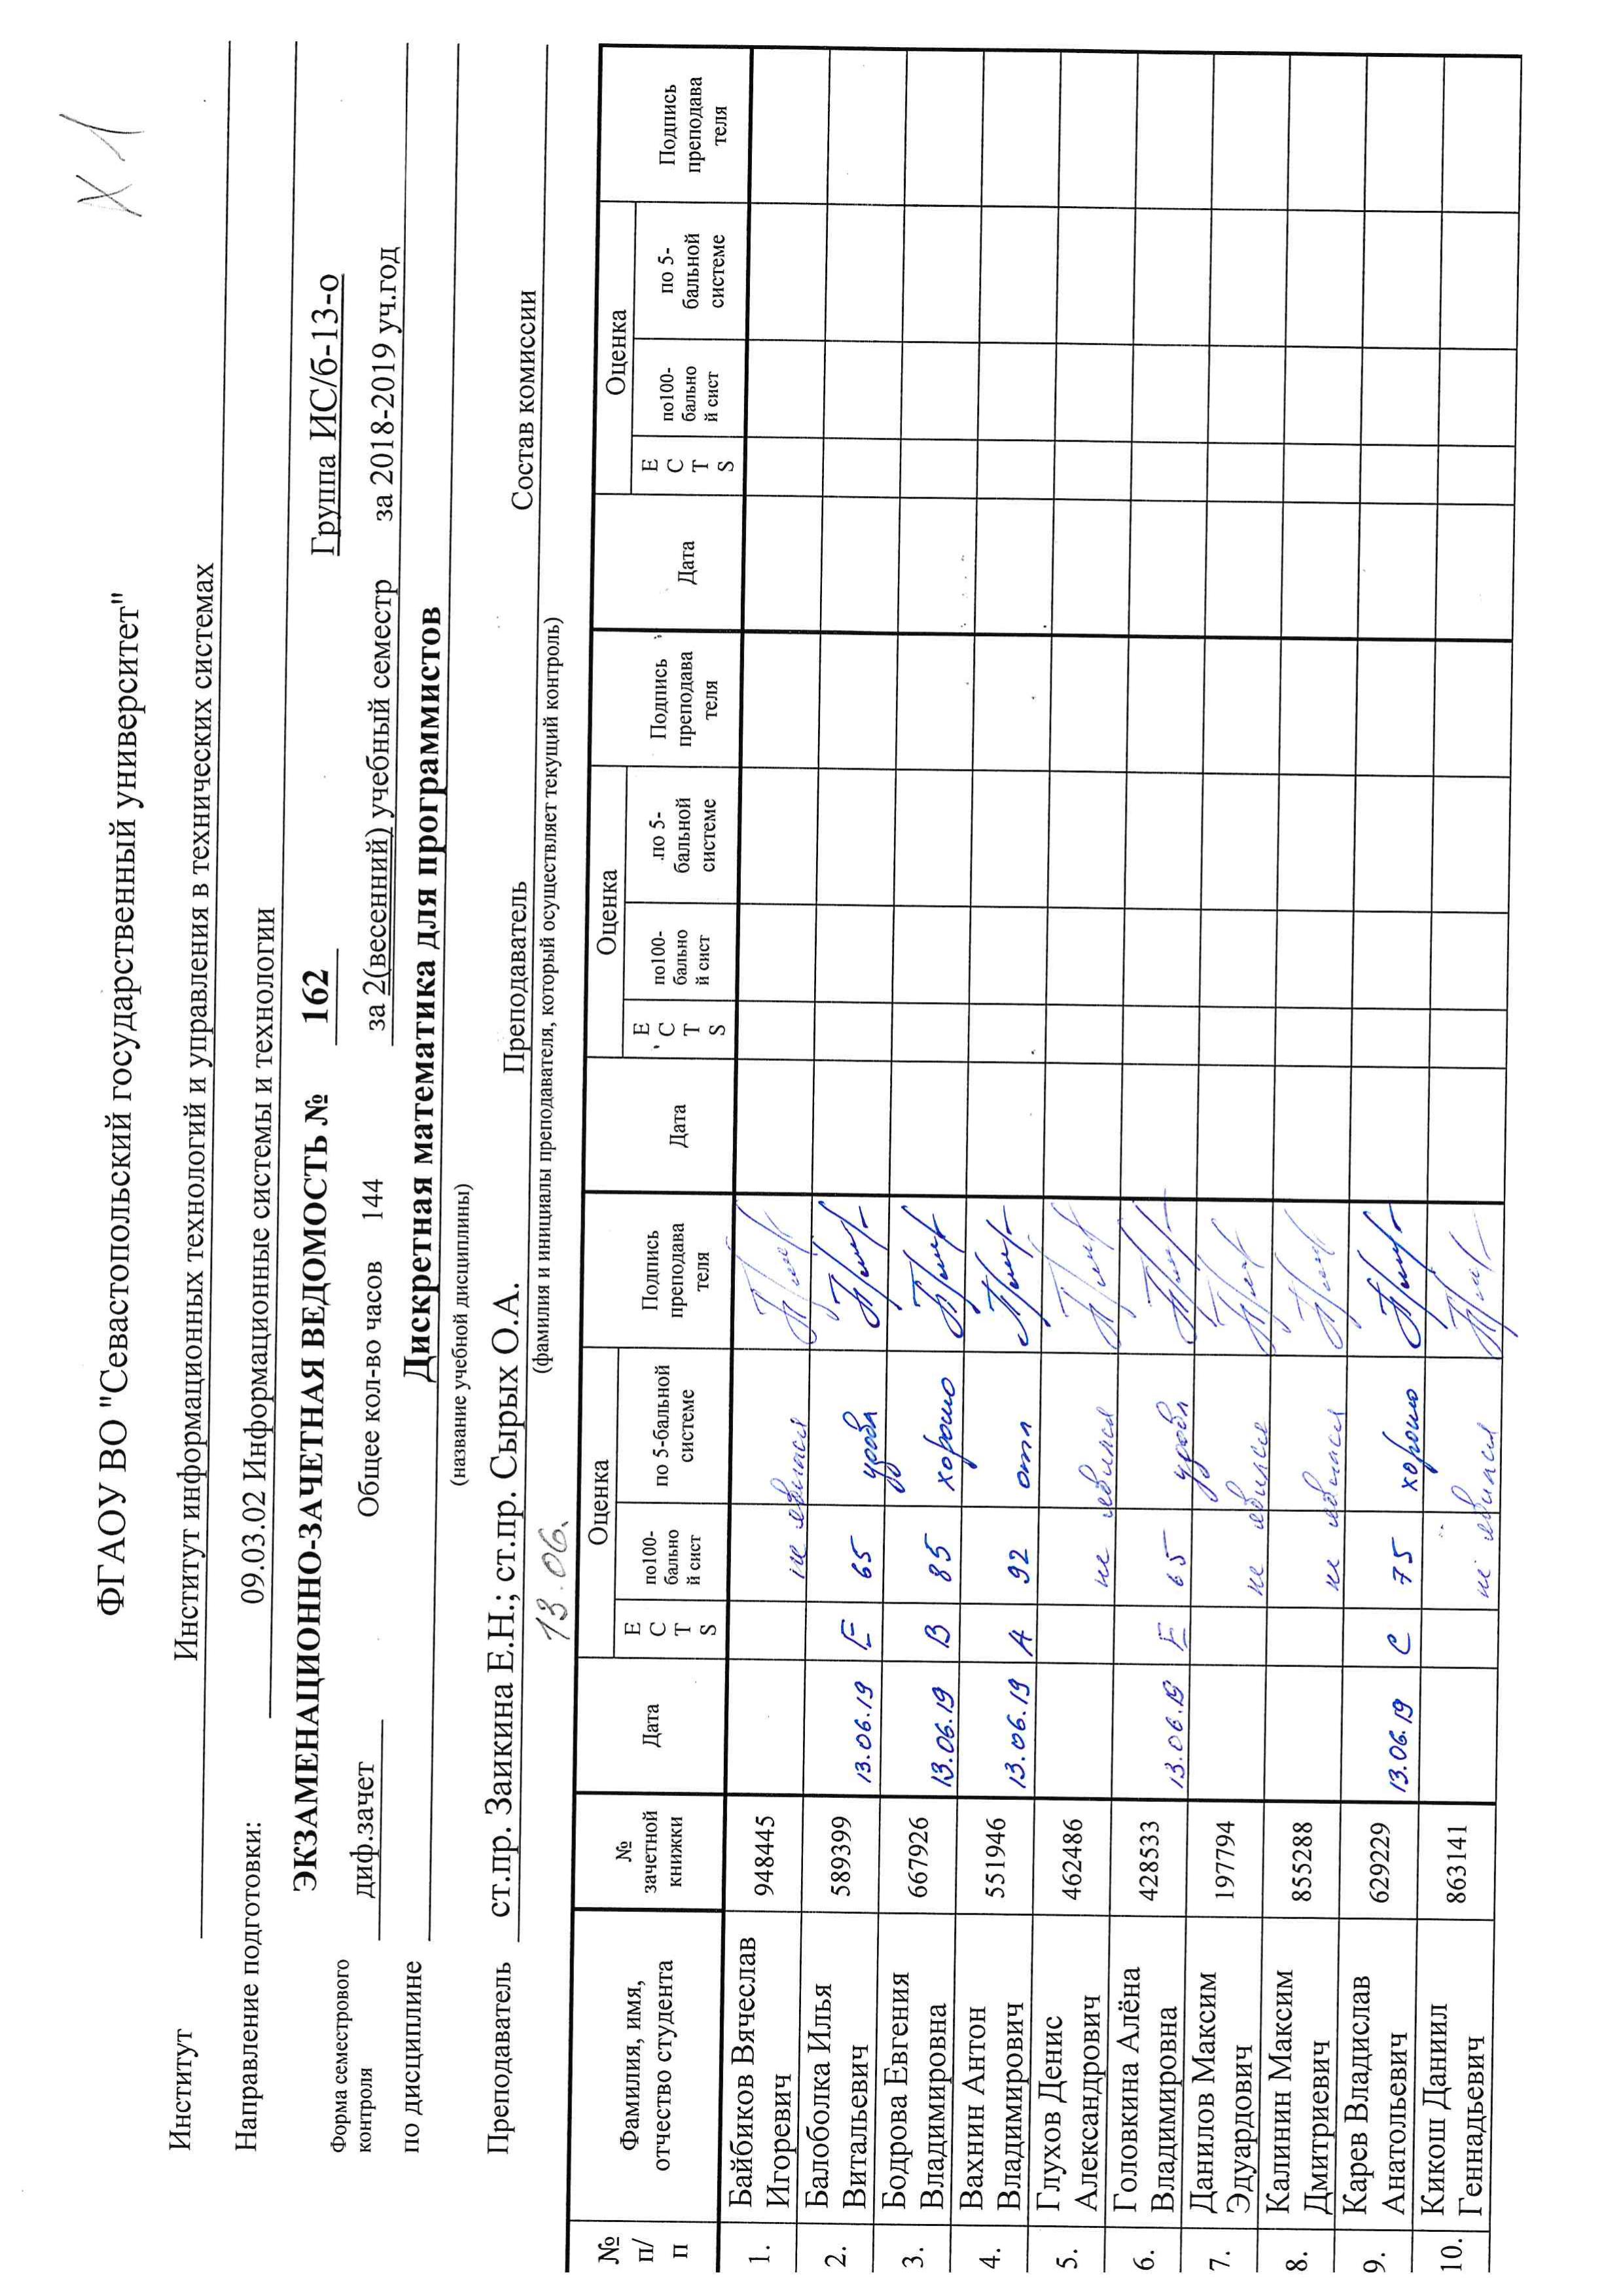 х 1
ФГАОУ ВО "Севастопольский государственный университет"
Институт Институт информационных технологий и управления в технических системах
Направление подготовки: 09.03.02 Информационные системы и технологии
ЭКЗАМЕНАЦИОННО-ЗАЧЕТНАЯ ВЕДОМОСТЬ № 162 Группа ИС/б-13-о
Форма семестрового контроля диф.зачет Общее кол-во часов 144 за 2(весенний) учебный семестр за 2018-2019 уч.год
по дисциплине Дискретная математика для программистов
(название учебной дисциплины)
Преподаватель ст.пр. Заикина Е.Н.; ст.пр. Сырых О.А. Преподаватель Состав комиссии
(фамилия и инициалы преподавателя, который осуществляет текущий контроль)
13.06.
№ п/п Фамилия, имя, отчество студента № зачетной книжки Дата Оценка ECTS по100-бально й сист по 5-бальной системе Подпись преподава теля Дата Оценка ECTS по100-бально й сист .по 5-бальной системе Подпись преподава теля Дата Оценка ECTS по100-бально й сист по 5-бальной системе Подпись преподава теля
1. Байбиков Вячеслав Игоревич 948445 не явился
2. Балоболка Илья Витальевич 589399 13.06.19 E 65 удовл
3. Бодрова Евгения Владимировна 667926 13.06.19 B 85 хорошо
4. Вахнин Антон Владимирович 551946 13.06.19 A 92 отл
5. Глухов Денис Александрович 462486 не явился
6. Головкина Алёна Владимировна 428533 13.06.19 E 65 удовл
7. Данилов Максим Эдуардович 197794 не явился
8. Калинин Максим Дмитриевич 855288 не явился
9. Карев Владислав Анатольевич 629229 13.06.19 C 75 хорошо
10. Кикош Даниил Геннадьевич 863141 не явился